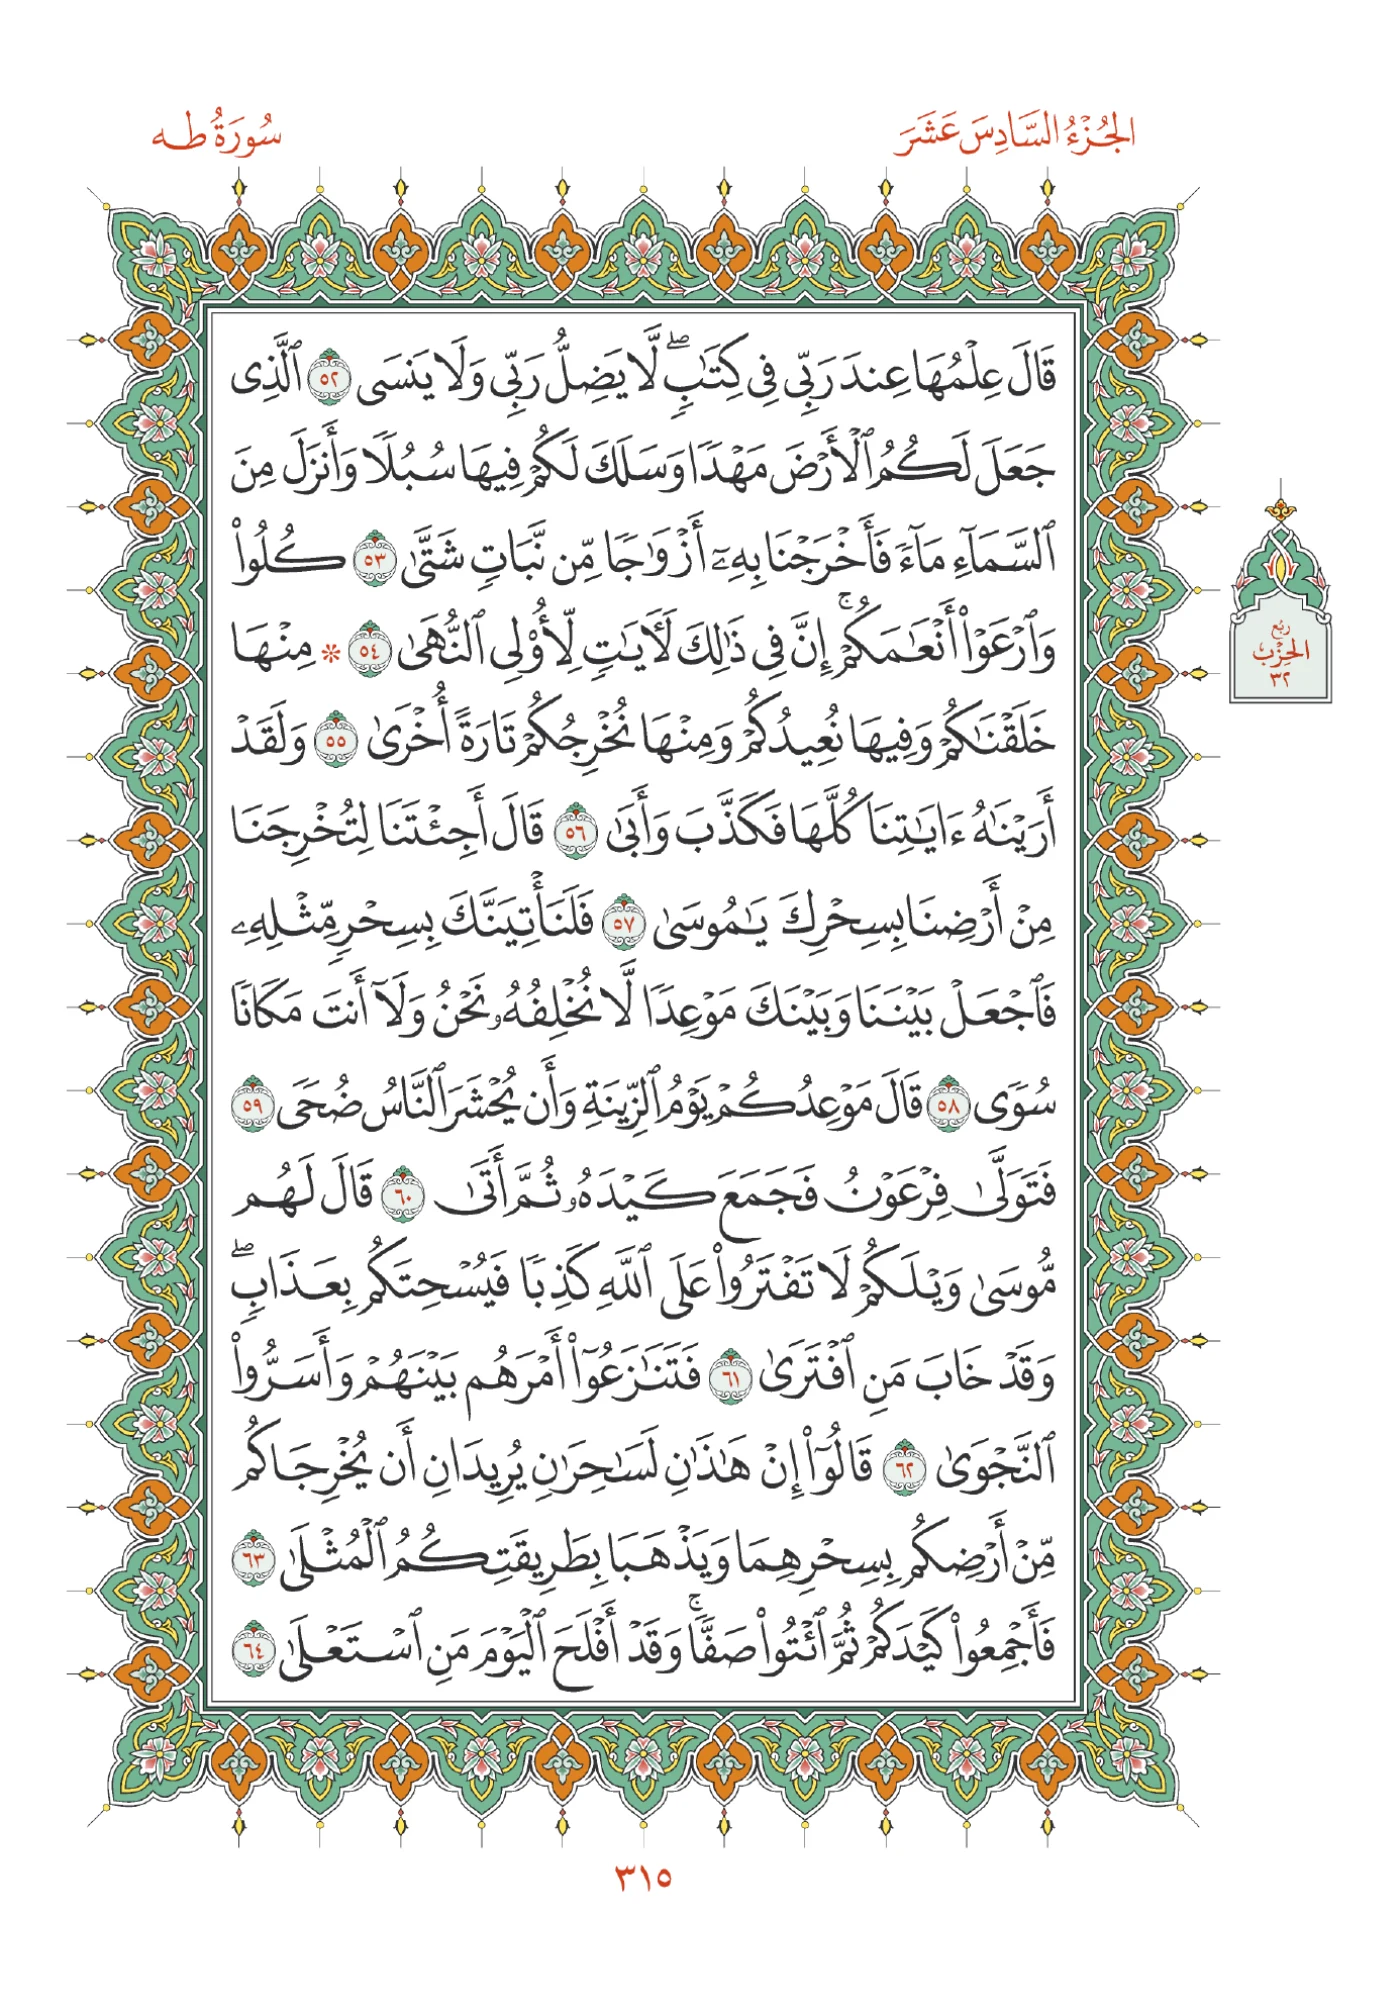 الجُزْءُ السَّادِسَ عَشَرَ
سُورَةُ طه
قَالَ عِلْمُهَا عِندَ رَبِّي فِي كِتَٰبٖۖ لَّا يَضِلُّ رَبِّي وَلَا يَنسَى ٥٢ ٱلَّذِي
جَعَلَ لَكُمُ ٱلْأَرْضَ مَهْدٗا وَسَلَكَ لَكُمْ فِيهَا سُبُلٗا وَأَنزَلَ مِنَ
ٱلسَّمَآءِ مَآءٗ فَأَخْرَجْنَا بِهِۦٓ أَزْوَٰجٗا مِّن نَّبَاتٖ شَتَّىٰ ٥٣ كُلُوا۟
وَٱرْعَوْا۟ أَنْعَٰمَكُمْۚ إِنَّ فِي ذَٰلِكَ لَأٓيَٰتٖ لِّأُو۟لِي ٱلنُّهَىٰ ٥٤ * مِنْهَا
خَلَقْنَٰكُمْ وَفِيهَا نُعِيدُكُمْ وَمِنْهَا نُخْرِجُكُمْ تَارَةً أُخْرَىٰ ٥٥ وَلَقَدْ
أَرَيْنَٰهُ ءَايَٰتِنَا كُلَّهَا فَكَذَّبَ وَأَبَىٰ ٥٦ قَالَ أَجِئْتَنَا لِتُخْرِجَنَا
مِنْ أَرْضِنَا بِسِحْرِكَ يَٰمُوسَىٰ ٥٧ فَلَنَأْتِيَنَّكَ بِسِحْرٖ مِّثْلِهِۦ
فَٱجْعَلْ بَيْنَنَا وَبَيْنَكَ مَوْعِدٗا لَّا نُخْلِفُهُۥ نَحْنُ وَلَآ أَنتَ مَكَانٗا
سُوٗى ٥٨ قَالَ مَوْعِدُكُمْ يَوْمُ ٱلزِّينَةِ وَأَن يُحْشَرَ ٱلنَّاسُ ضُحٗى ٥٩
فَتَوَلَّىٰ فِرْعَوْنُ فَجَمَعَ كَيْدَهُۥ ثُمَّ أَتَىٰ ٦٠ قَالَ لَهُم
مُّوسَىٰ وَيْلَكُمْ لَا تَفْتَرُوا۟ عَلَى ٱللَّهِ كَذِبٗا فَيُسْحِتَكُم بِعَذَابٖۖ
وَقَدْ خَابَ مَنِ ٱفْتَرَىٰ ٦١ فَتَنَٰزَعُوٓا۟ أَمْرَهُم بَيْنَهُمْ وَأَسَرُّوا۟
ٱلنَّجْوَىٰ ٦٢ قَالُوٓا۟ إِنْ هَٰذَٰنِ لَسَٰحِرَٰنِ يُرِيدَانِ أَن يُخْرِجَاكُم
مِّنْ أَرْضِكُم بِسِحْرِهِمَا وَيَذْهَبَا بِطَرِيقَتِكُمُ ٱلْمُثْلَىٰ ٦٣
فَأَجْمِعُوا۟ كَيْدَكُمْ ثُمَّ ٱئْتُوا۟ صَفّٗاۚ وَقَدْ أَفْلَحَ ٱلْيَوْمَ مَنِ ٱسْتَعْلَىٰ ٦٤
ربع
الحِزْب
٣٢
٣١٥